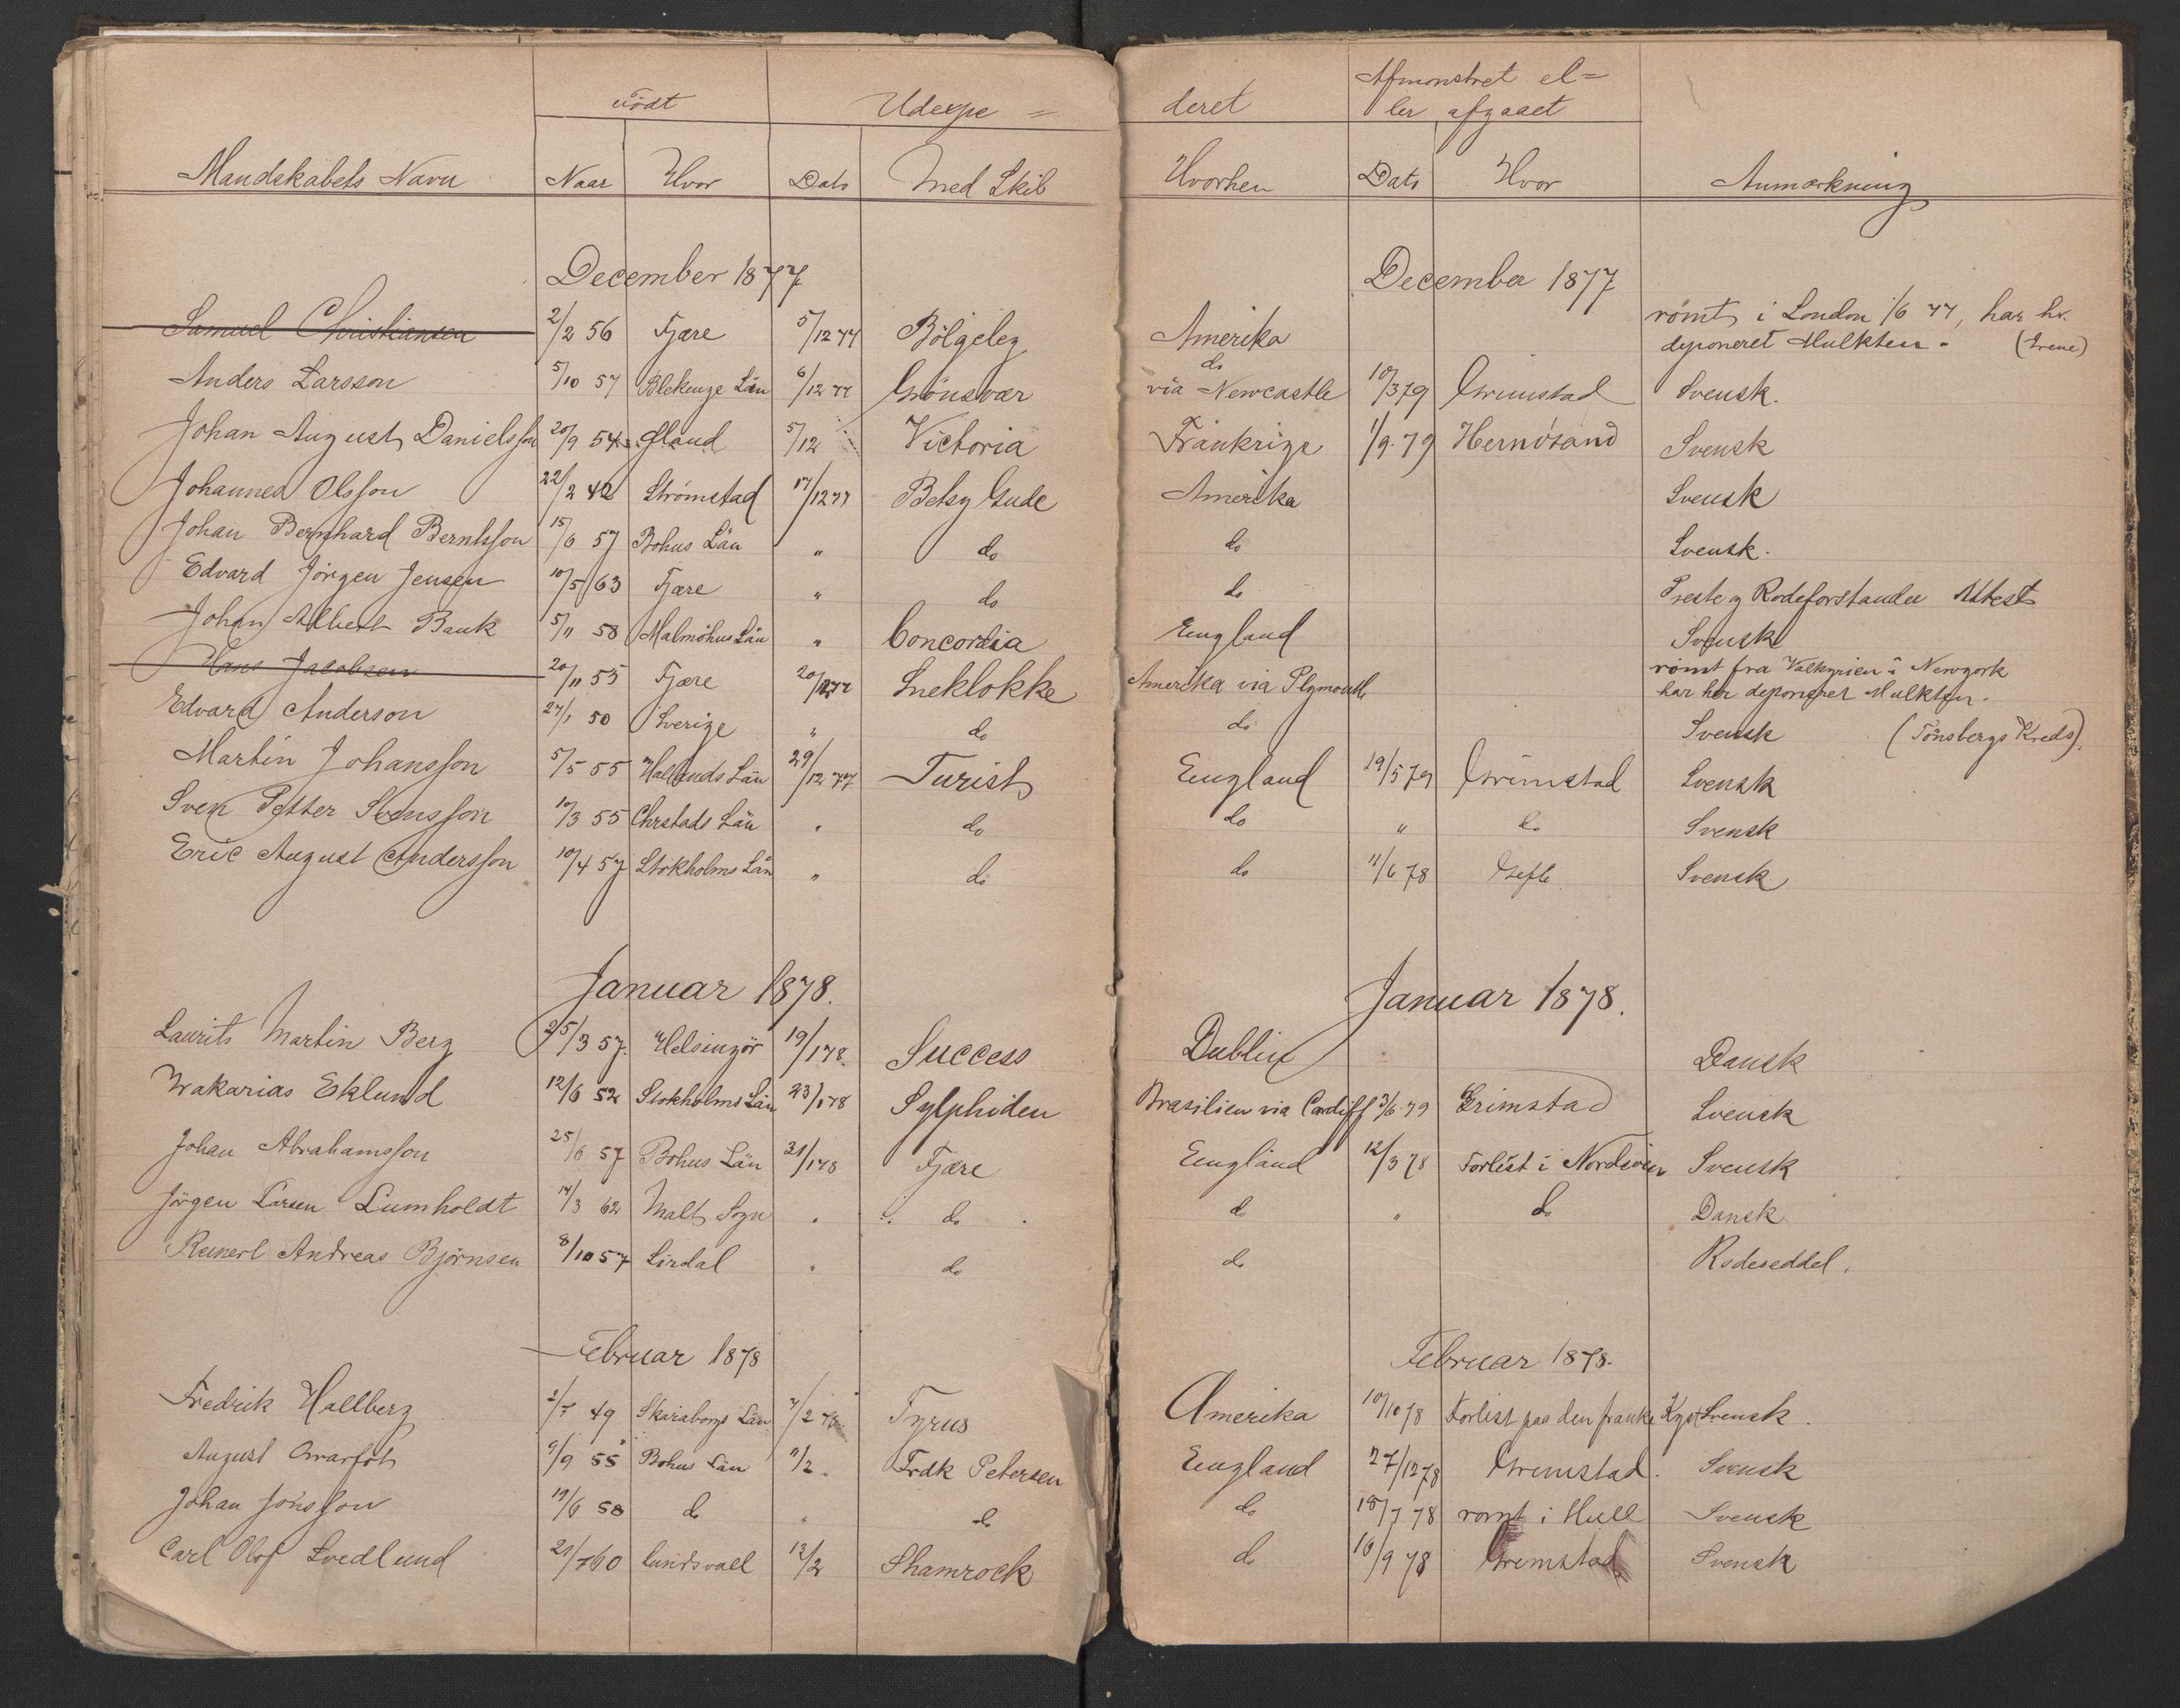 Født Udexpe = deret Afmønstret el=
ler afgaaet
Mandskabets Navn Naar Hvor Dato Med Skib Hvorhen Dato Hvor Anmærkning
December 1877 December 1877
Samuel Christiansen 2/2 56 Fjære 5/12 77 Bölgeleg Amerika römt i London 1/6 77, har hr.
deponeret Mulkten. (Irene)
Anders Larsson 5/10 57 Blekenge Län 6/12 77 Grönsvær do
via Newcastle 10/3 79 Grimstad Svensk.
Johan August Danielsson 20/9 54 Øland 5/12 Victoria Frankrige 1/9 79 Hernösand Svensk
Johannes Olsson 22/2 42 Strömstad 17/12 77 Betsy Gude Amerika Svensk
Johan Bernhard Berntsson 15/6 57 Bohus Län " do do Svensk.
Edvard Jörgen Jensen 10/5 63 Fjære " do do Preste og Rodeforstander Attest
Johan Albert Bank 5/11 58 Malmöhus Län " Concordia England Svensk
Hans Jacobsen 20/11 53 Fjære 20/12 77 Sneklokke Amerika via Plymouth römt fra Valkyrien i Newyork
har her deponeret Mulkten.
Edvard Anderson 27/1 50 Sverige " do do Svensk (Tönsbergs Kreds).
Martin Johansson 5/5 55 Hallands Län 29/12 77 Turist England 19/5 79 Grimstad Svensk
Sven Petter Svensson 10/3 55 Chrstads Län " do do " do Svensk
Eric August Andersson 10/4 57 Stokholms Län " do do 11/6 78 Gefle Svensk
Januar 1878. Januar 1878.
Laurits Martin Berg 25/3 57. Helsingör 19/1 78. Success Dublin Dansk
Zrakarias Eklund 12/6 52 Stokholms Län 23/1 78 Sylphiden Brasilien via Cardiff 3/6 79 Grimstad Svensk
Johan Abrahamsson 25/6 57 Bohus Län 31/1 78 Fjære England 12/3 78 Forlist i Nordsöen Svensk
Jörgen Larsen Lumholdt 14/3 62 Malt Sogn " do do " do Dansk
Reinert Andreas Björnsen 8/10 57 Lirdal " do do Rodeseddel.
Februar 1878 Februar 1878.
Fredrik Hallberg 2/7 49 Skaraborgs Län /2 78 Tyrus Amerika 10/10 78 Forlist paa den franke Kyst Svensk.
August 9/9 55 Bohus Län 11/2. Frdk Petersen England 27/12 78 Grimstad. Svensk
Johan Jönsson 19/6 58 do " do do 18/7 78 romt i Hull Svensk
Carl Olof Svedlund 21/7 60 Sundsvall 12/2 Shamrock do 16/9 78 Grimstad Svensk